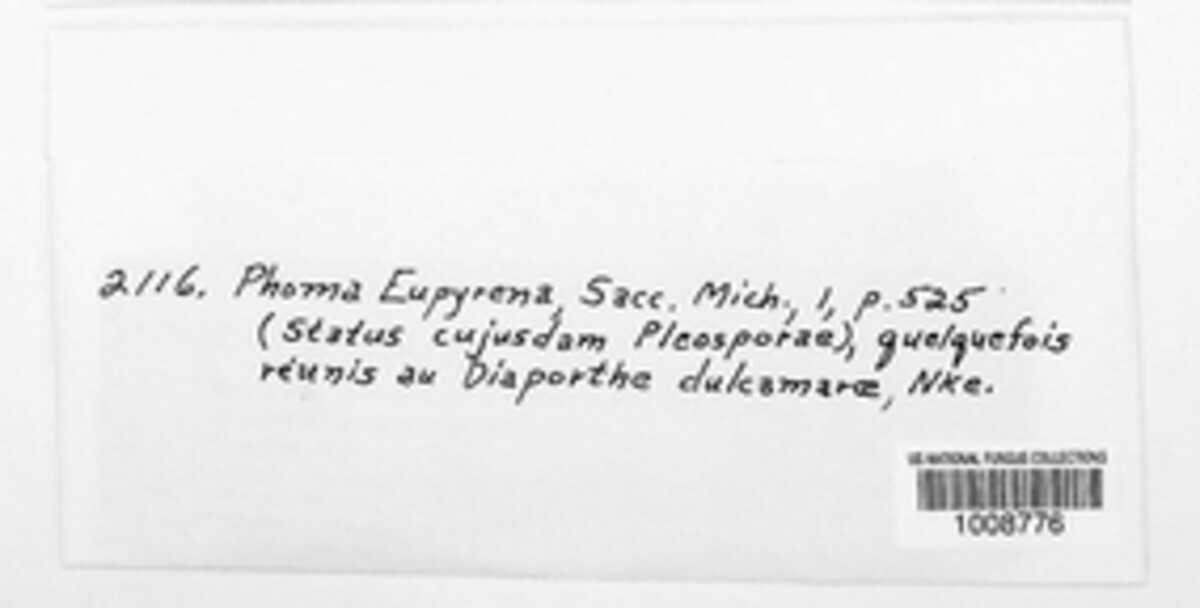 2116. Phoma Eupyrena, Sacc. Mich., 1, p. 525
(Status cujusdam Pleosporae), quelquefois
réunis au Diaporthe dulcamaræ, Nke.
US NATIONAL FUNGUS COLLECTIONS
1008776